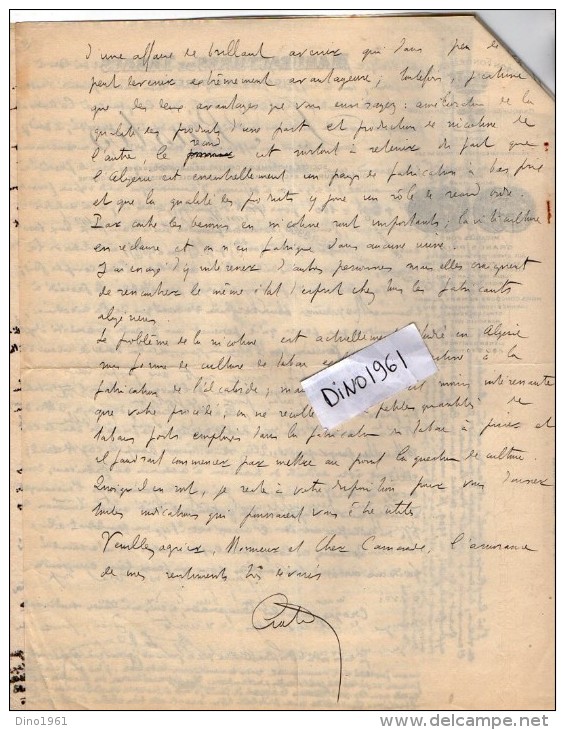 d'une affaire de brillant avenir qui dans peu de
peut devenir extrêmement avantageuse; toutefois, j'estime
que des deux avantages que vous envisagez: amélioration de la
qualité des produits d'une part et production de nicotine de
l'autre, le second est surtout à retenir du fait que
l'Algérie est essentiellement un pays de fabrication à bas prix
et que la qualité des produits y joue un rôle de second ordre.
Par contre les besoins en nicotine sont importants; la viticulture
en réclame et on n'en fabrique dans aucune usine.
J'ai essayé d'y intéresser d'autres personnes mais elles craignent
de rencontrer le même état d'esprit chez tous les fabricants
algériens.
Le problème de la nicotine est actuellement étudié en Algérie
sous forme de culture de tabac à la
fabrication de l'alcaloïde; mais est moins intéressante
que votre procédé; on ne récolte petites quantités de
tabacs forts employés dans la fabrication du tabac à priser et
il faudrait commencer par mettre au point la question de culture.
Quoiqu'il en soit, je reste à votre disposition pour vous donner
toutes indications qui pourraient vous être utiles.
Veuillez agréer, Monsieur et Cher Camarade, l'assurance
de mes sentiments très dévoués
DINO1961
Dino1961
delcampe.net